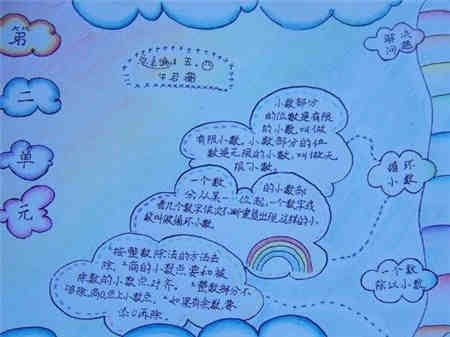 第
二
单
元
五
小数部分
的位数是有限
的小数,叫做
有限小数。小数部分的位
数是无限的小数,叫做无
限小数。
一个数
的小数部
分,从某一位起,一个数字或
者几个数字依次不断重复出现,这样的小
数叫做循环小数。
按整数除法的方法去
除,商的小数点要和被
除数的小数点对齐。整数部分不
够除,商0,点上小数点。如果有余数,要
添0再除。
解决
问题
循环
小数
一个数
除以小数